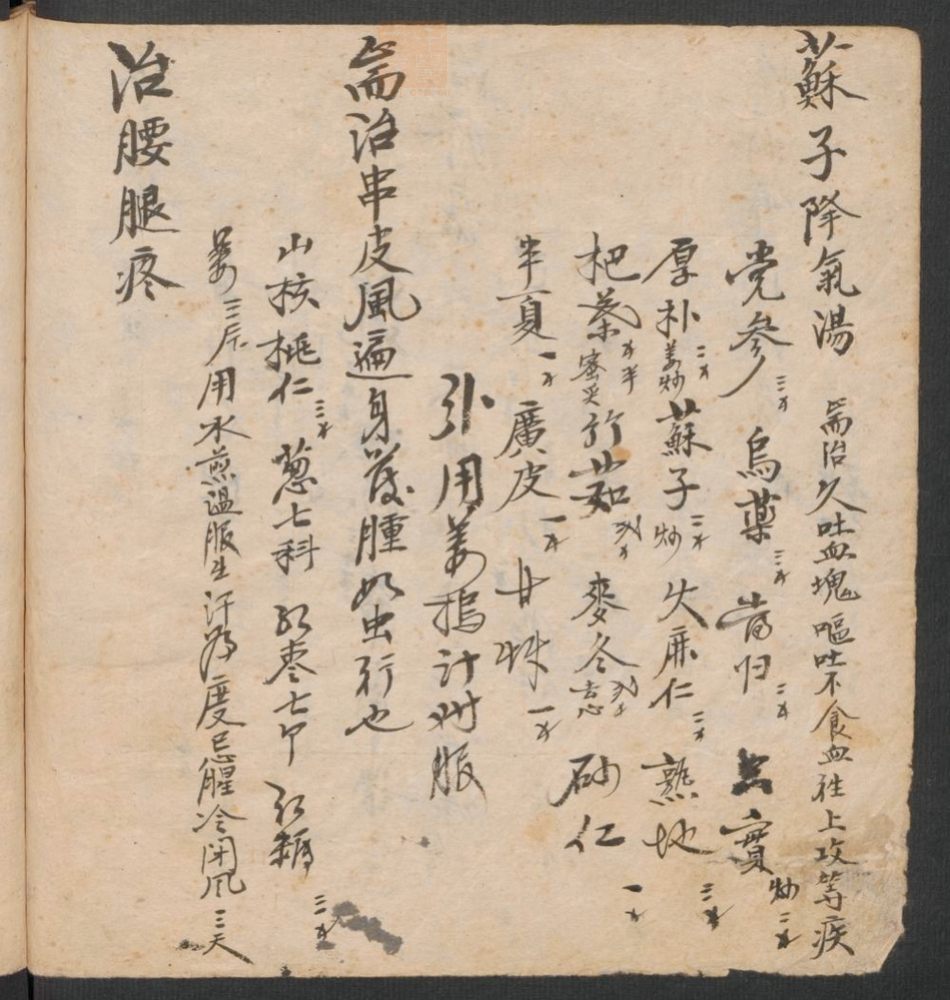 蘇子降氣湯 耑治久吐血塊嘔吐不食血徃上攻等疾
党参三才 烏藥三才 当归二才 实實炒二才
厚朴姜炒二才 蘇子炒二才 火麻仁二才 熟地三才
杷葉蜜炙才半 竹茹刄才 麥冬去心刄才 砂仁一才
半夏一才 廣皮一才 甘草一才
引用姜搗汁対服
耑治串皮風遍身發腫如虫行也
山核桃仁三才 葱七科 红枣七个 红糖三才
姜三片 用水煎温服生汗為度忌腥冷闭风三天
治腰腿疼